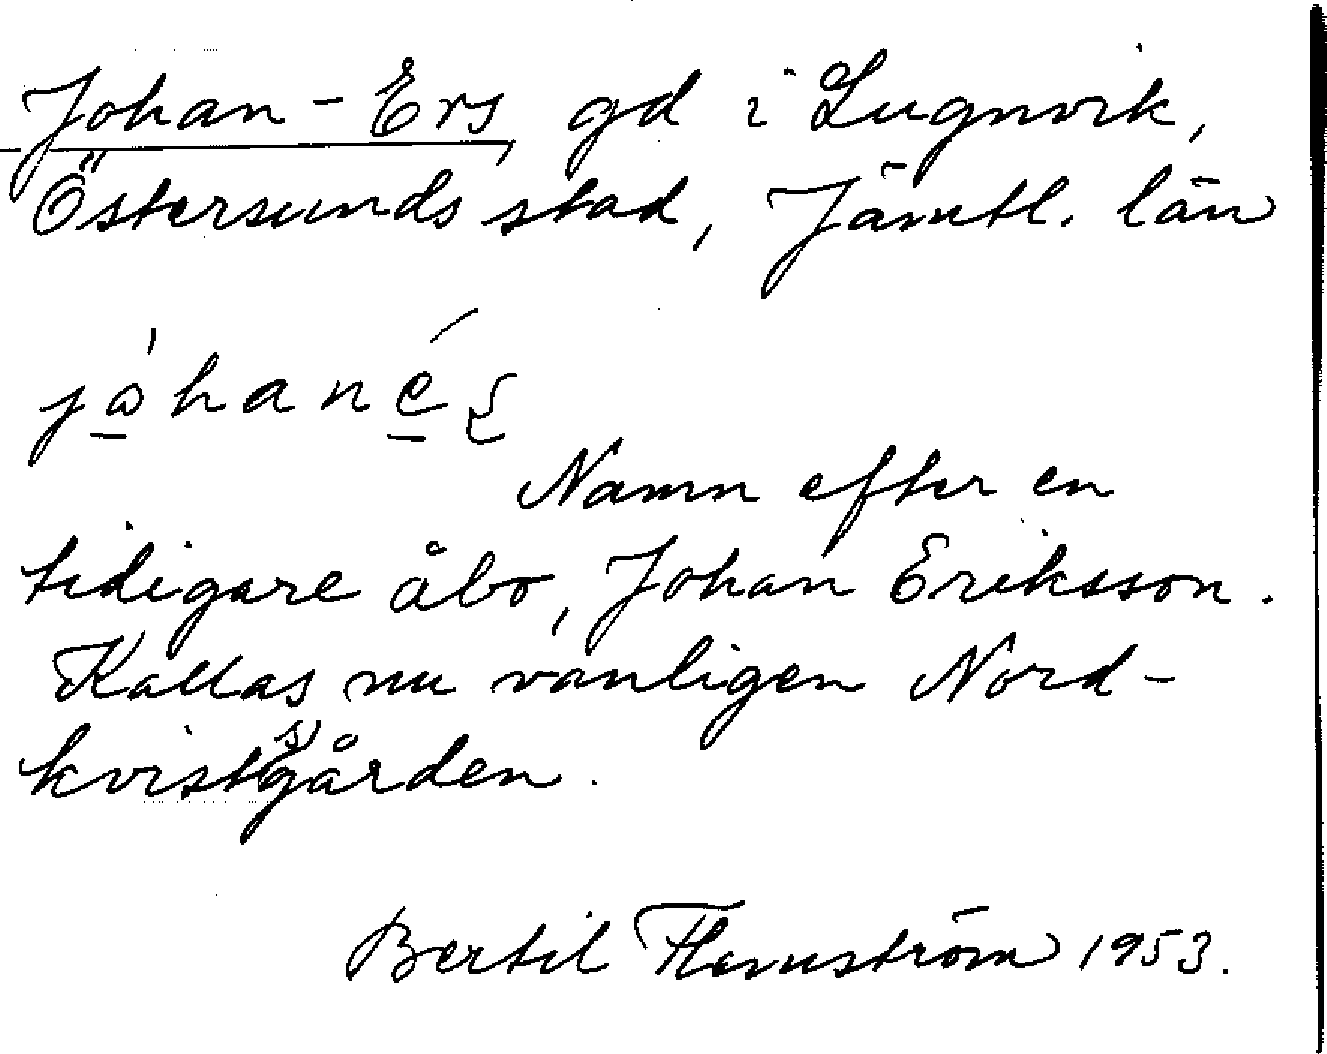 Johan-Ers, gd i Lugnvik,
Östersunds stad, Jämtl. län
Namn efter en
tidigare åbo, Johan Eriksson.
Kallas nu vanligen Nord-
kvist(s)gården.
Bertil Flemström 1953.